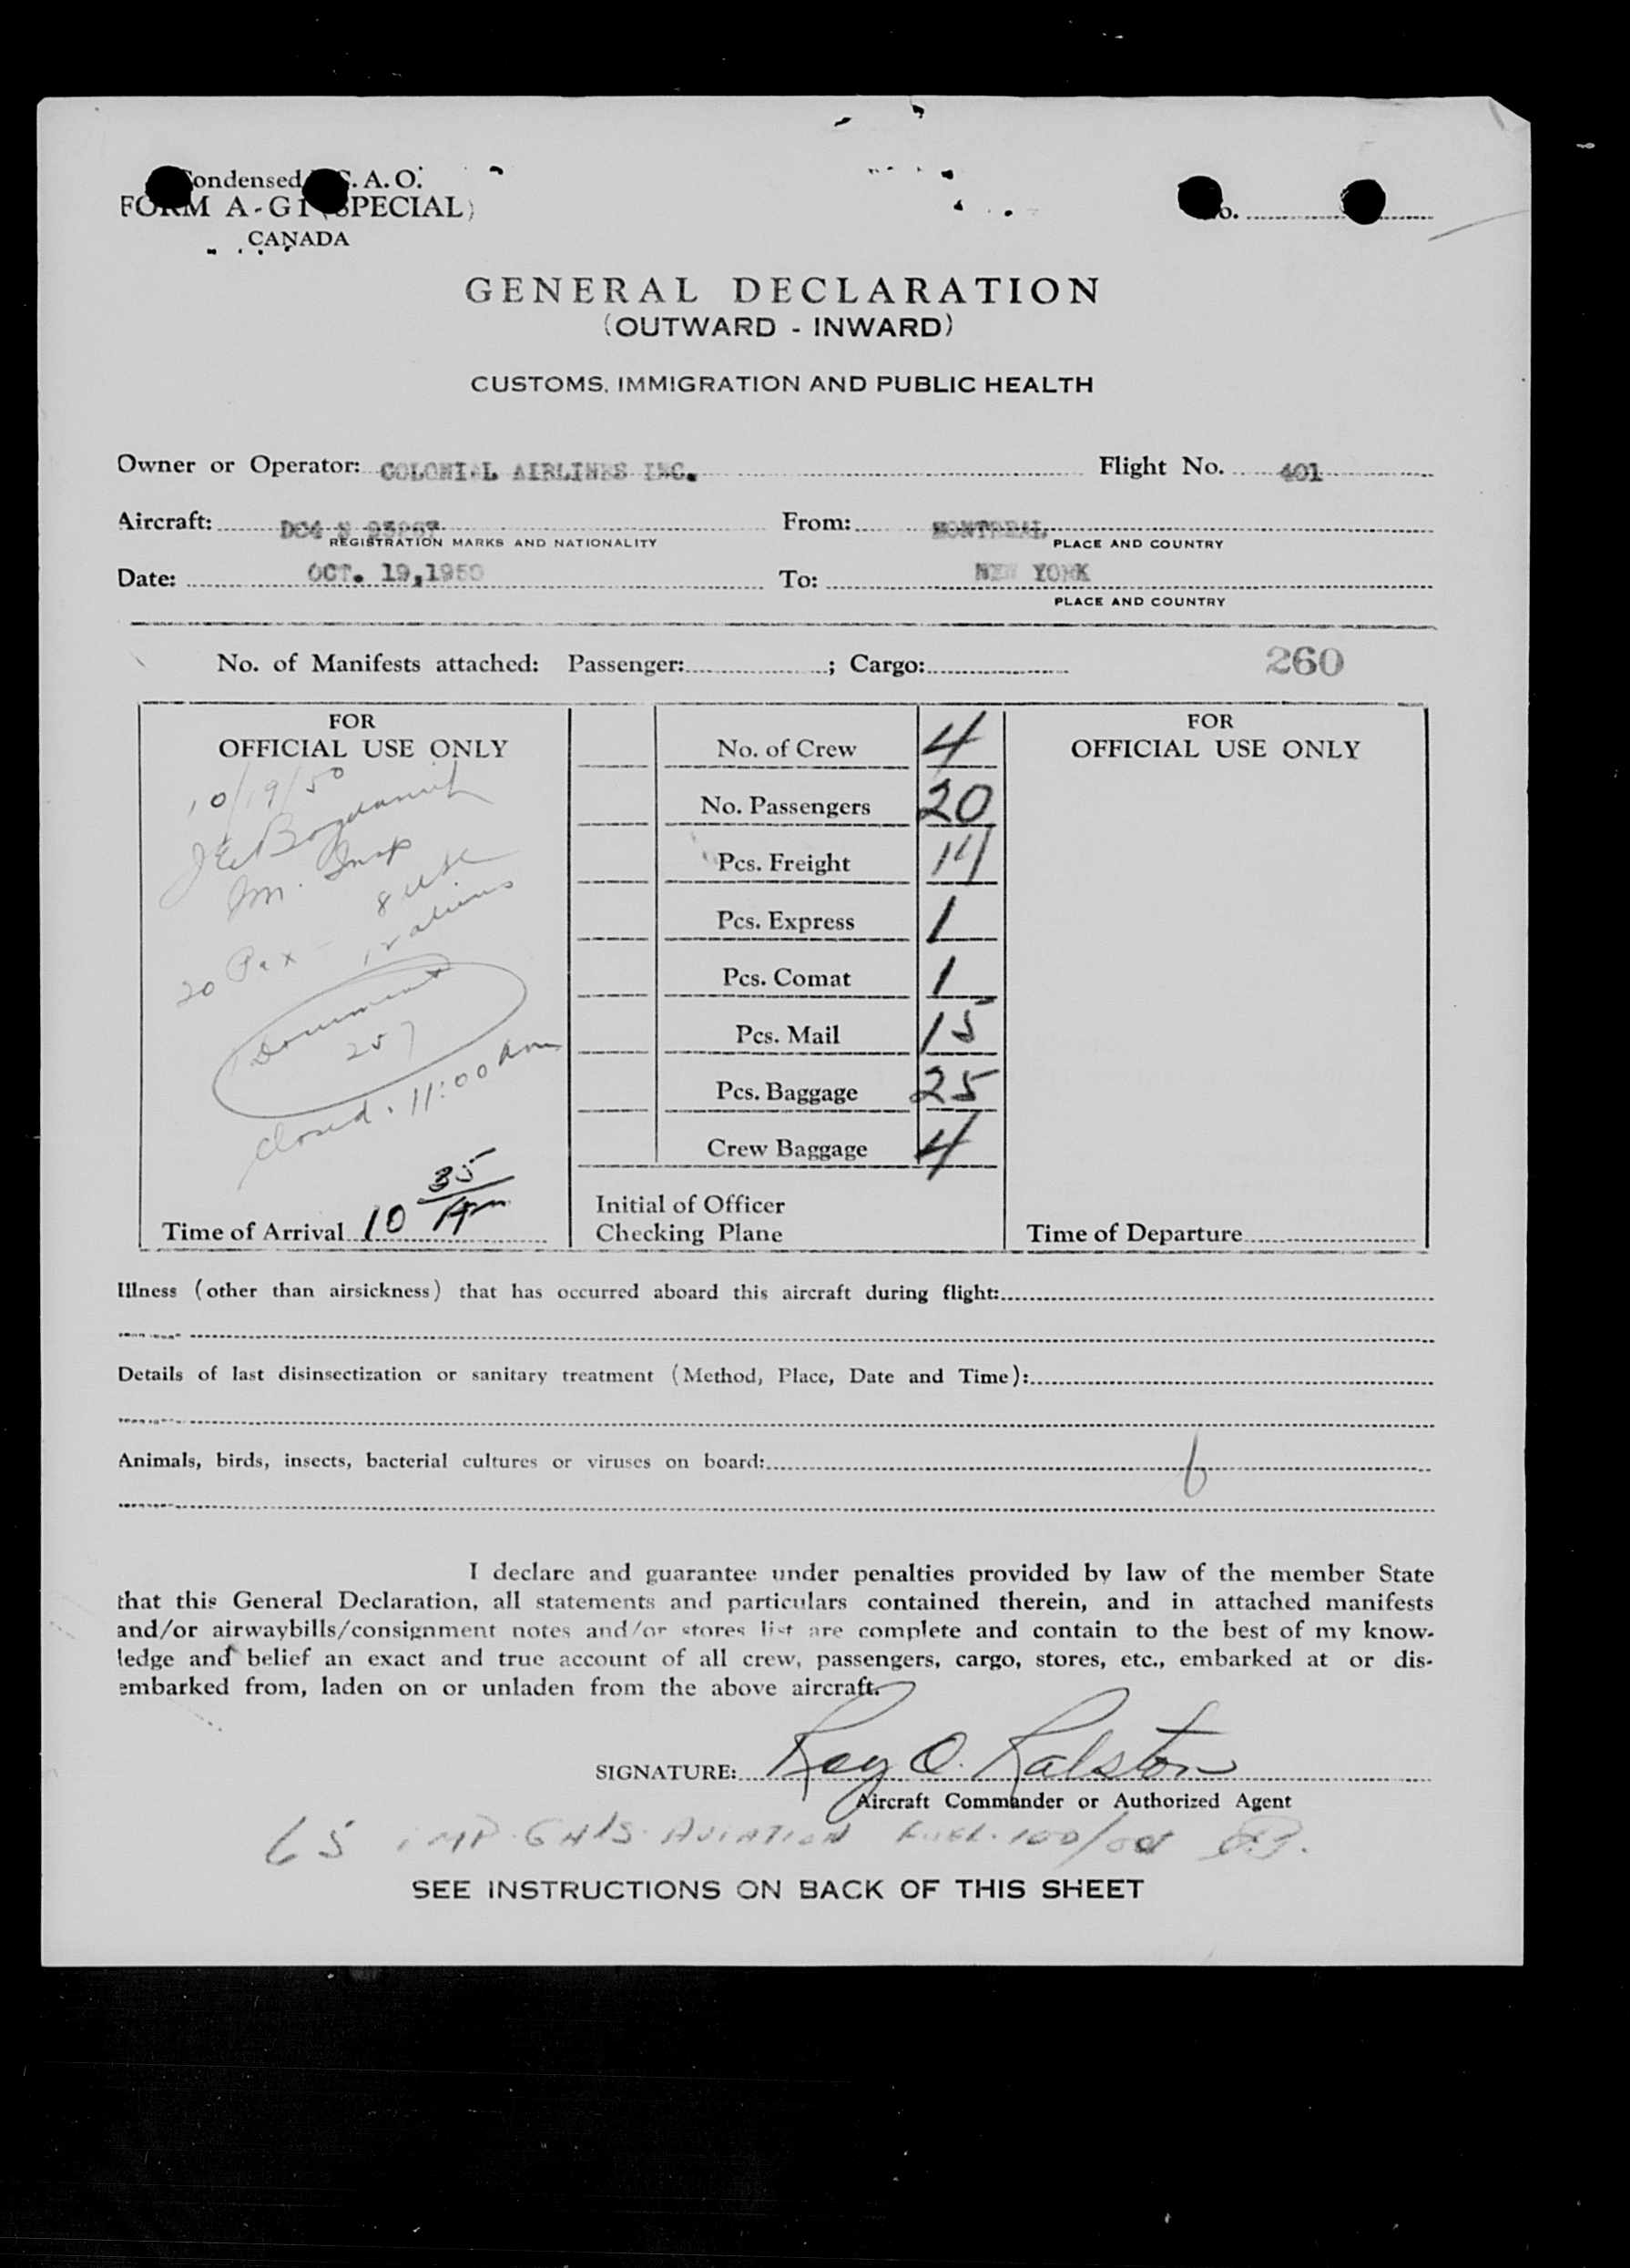 Condensed I.C.A.O.
FORM A-G1 (SPECIAL)
CANADA
No.
GENERAL DECLARATION
(OUTWARD - INWARD)
CUSTOMS, IMMIGRATION AND PUBLIC HEALTH
Owner or Operator: COLONIAL AIRLINES INC. Flight No. 401
Aircraft: DC4 N From: MONTREAL
REGISTRATION MARKS AND NATIONALITY PLACE AND COUNTRY
Date: OCT. 19,1950 To: NEW YORK
PLACE AND COUNTRY
No. of Manifests attached: Passenger: ; Cargo: 260
FOR
OFFICIAL USE ONLY
10/19/50
Im. Insp
20 Pax - 8 USC
12 aliens
Document
257
closed. 11:00 Am
Time of Arrival 10 35 Am
No. of Crew 4
No. Passengers 20
Pcs. Freight 14
Pcs. Express 1
Pcs. Comat 1
Pcs. Mail 15
Pcs. Baggage 25
Crew Baggage 4
Initial of Officer
Checking Plane
FOR
OFFICIAL USE ONLY
Time of Departure
Illness (other than airsickness) that has occurred aboard this aircraft during flight:
Details of last disinsectization or sanitary treatment (Method, Place, Date and Time):
Animals, birds, insects, bacterial cultures or viruses on board:
I declare and guarantee under penalties provided by law of the member State
that this General Declaration, all statements and particulars contained therein, and in attached manifests
and/or airwaybills/consignment notes and/or stores list are complete and contain to the best of my know-
ledge and belief an exact and true account of all crew, passengers, cargo, stores, etc., embarked at or dis-
embarked from, laden on or unladen from the above aircraft.
SIGNATURE: Ray O. Ralston
Aircraft Commander or Authorized Agent
65 IMP. GALS. AVIATION FUEL. 100/
SEE INSTRUCTIONS ON BACK OF THIS SHEET